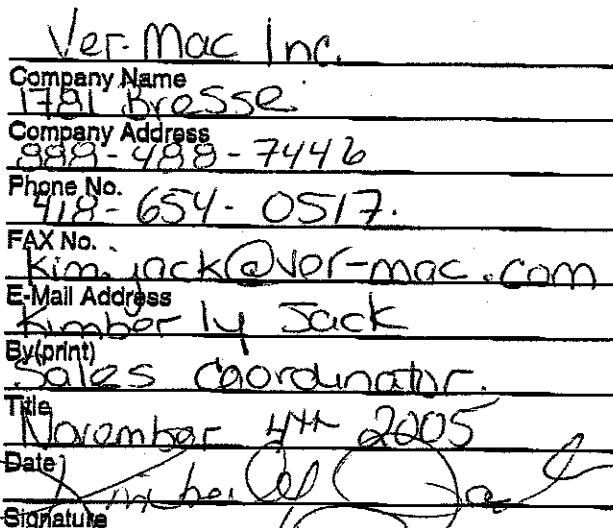 Ver-Mac Inc.
Company Name
1781 Bresse
Company Address
888-488-7446
Phone No.
418-654-0517.
FAX No.
kim.jack@ver-mac.com
E-Mail Address
Kimberly Jack
By(print)
Sales Coordinator.
Title
November 4th 2005
Date
Kimberly Jack
Signature